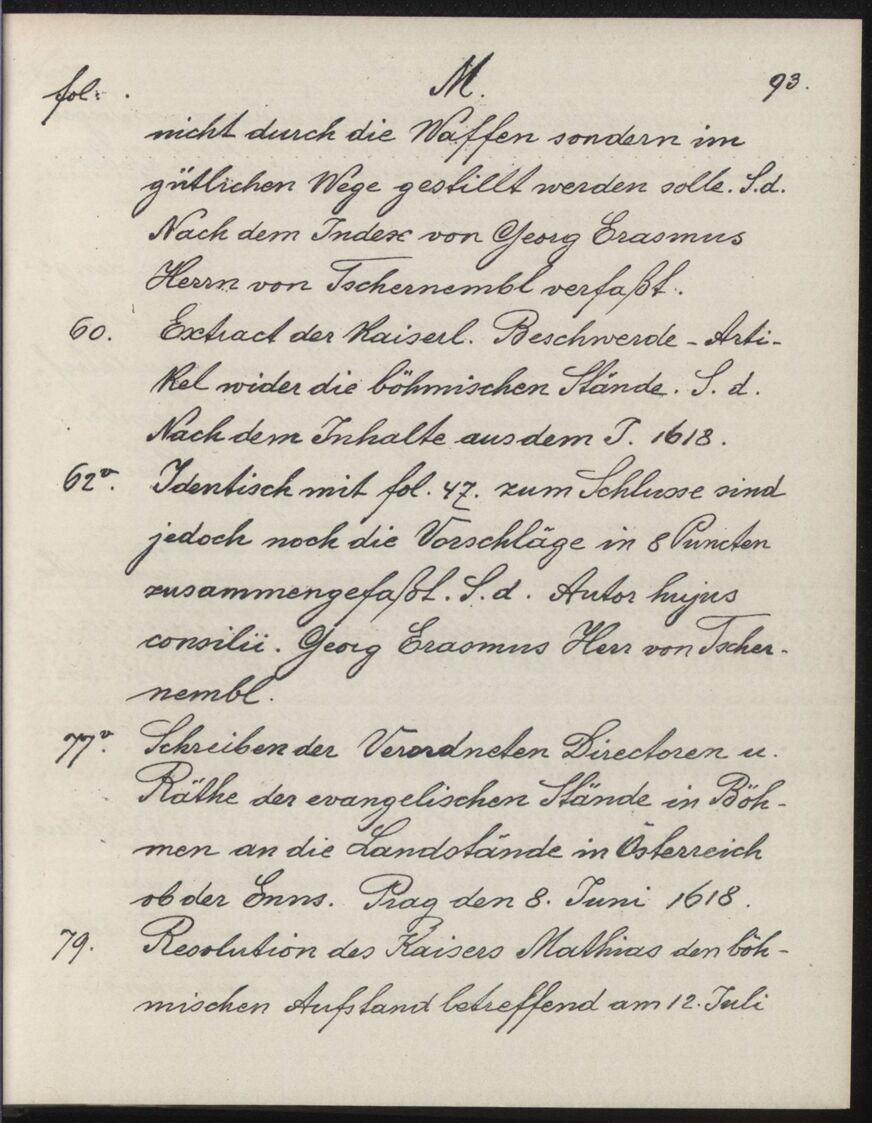 fol: M. 93.
nicht durch die Waffen sondern im
gütlichen Wege gestillt werden solle. S.d.
Nach dem Index von Georg Erasmus
Herrn von Tschernembl verfaßt.
60. Extract der Kaiserl. Beschwerde-Arti-
kel wider die böhmischen Stände. S. d.
Nach dem Inhalte aus dem J. 1618.
62v. Identisch mit fol. 47. zum Schlusse sind
jedoch noch die Vorschläge in 8 Puncten
zusammengefaßt. S. d. Autor hujus
consilii. Georg Erasmus Herr von Tscher-
nembl.
77v. Schreiben der Verordneten Directoren u.
Räthe der evangelischen Stände in Böh-
men an die Landstände in Österreich
ob der Enns. Prag den 8. Juni 1618.
79. Resolution des Kaisers Mathias den böh-
mischen Aufstand betreffend am 12. Juli